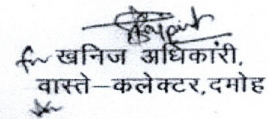 खनिज अधिकारी,
वास्ते–कलेक्टर,दमोह